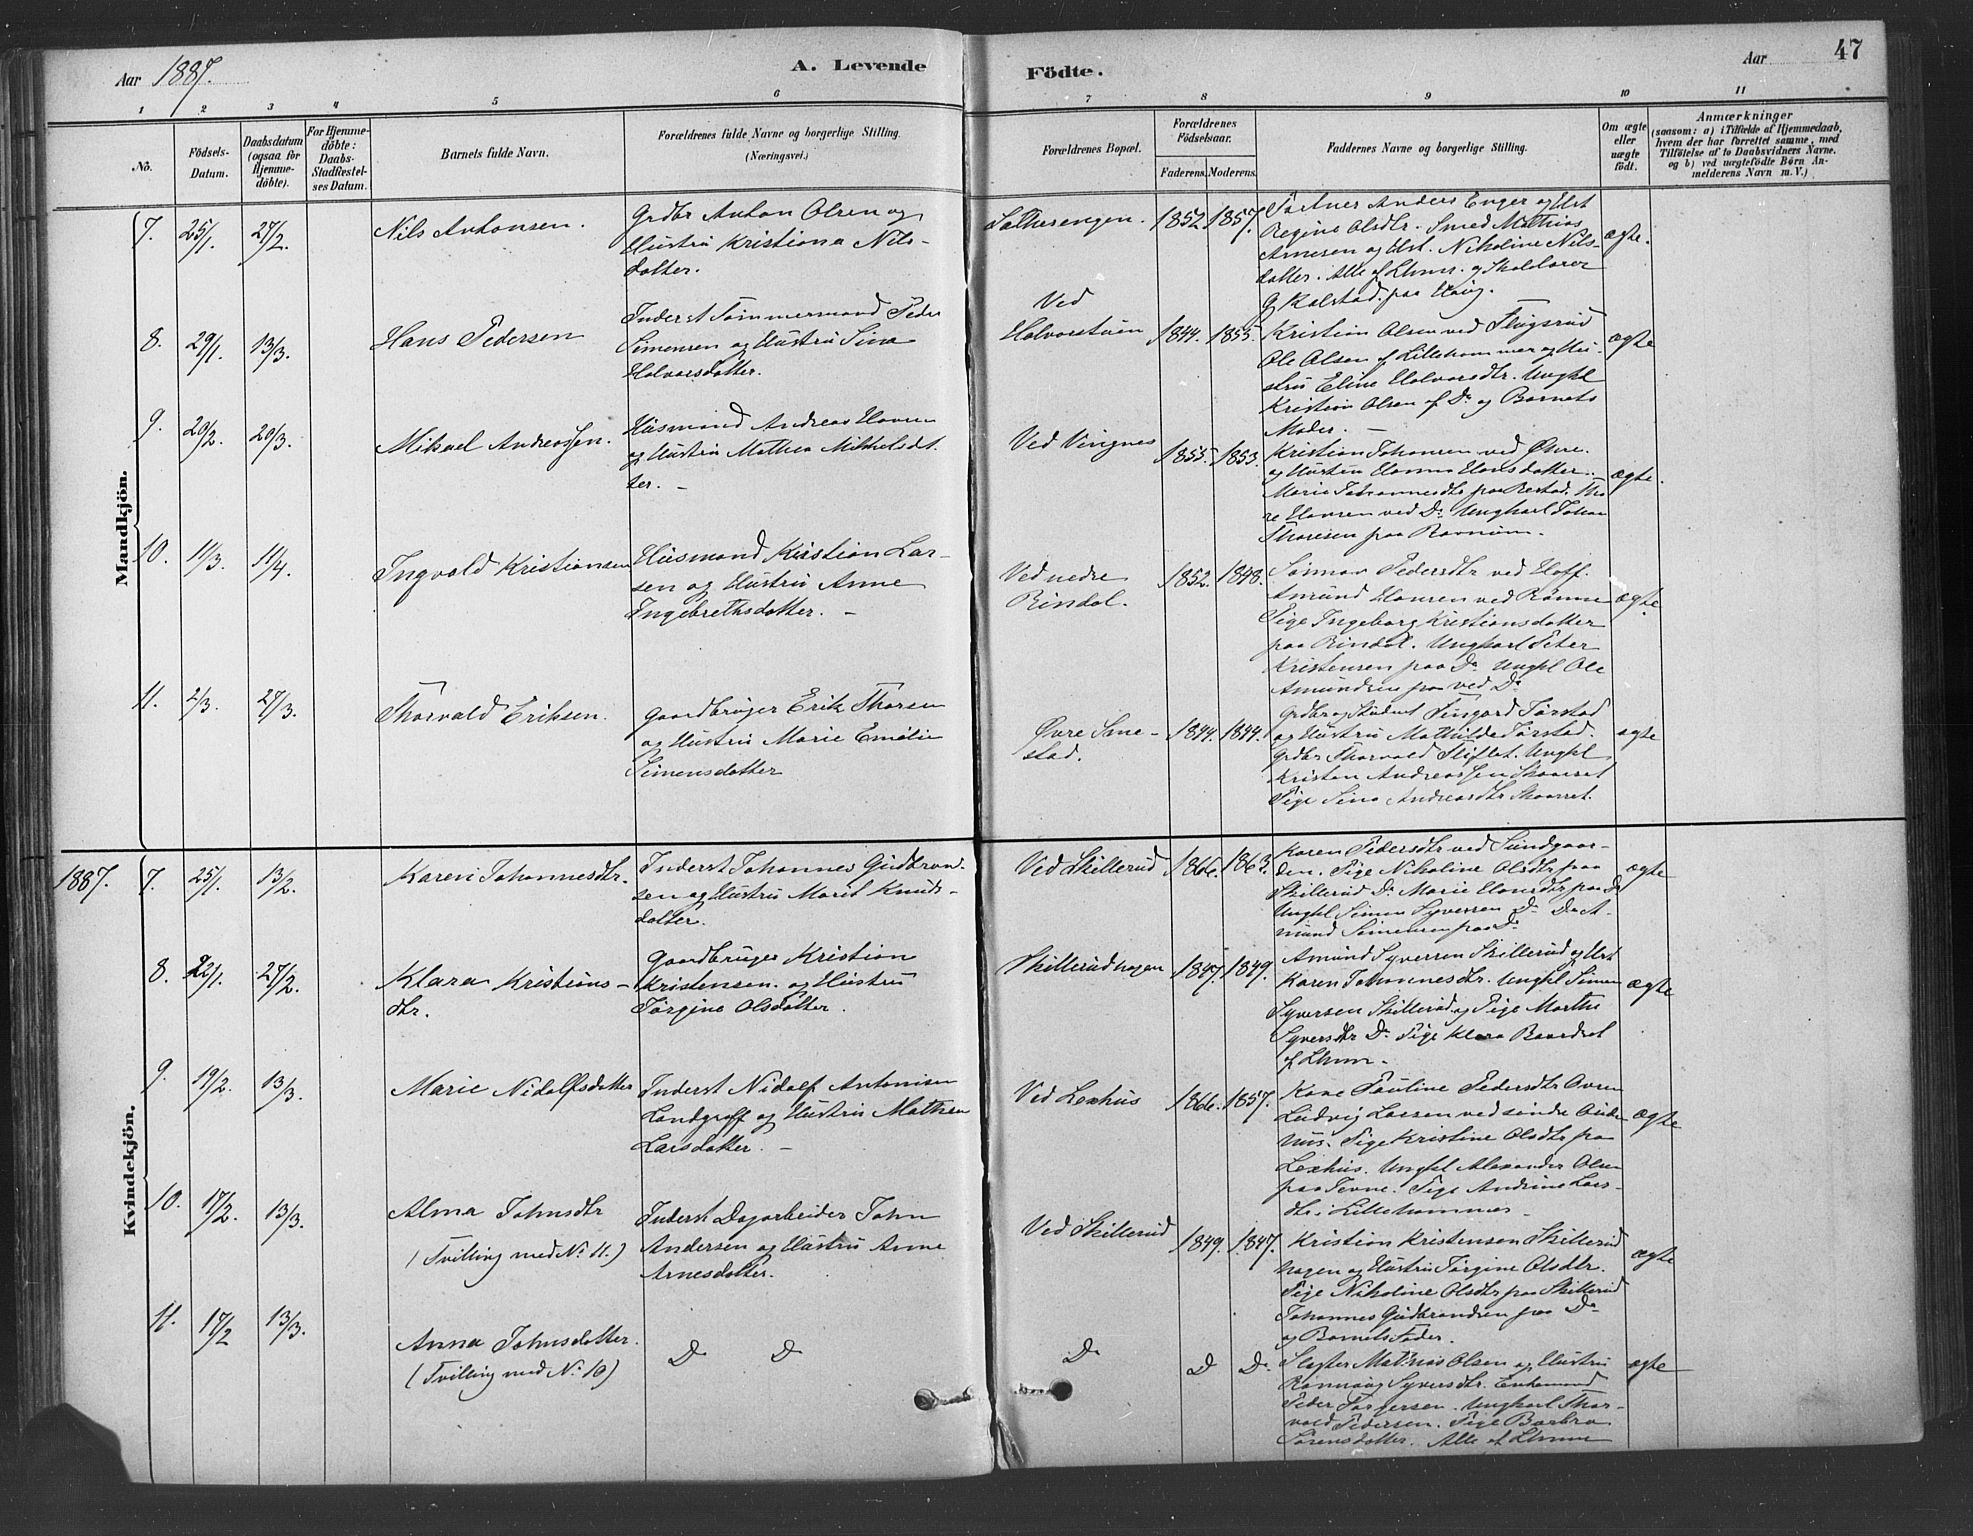 Aar 1887.
A. Levende
Födte.
Aar
47
1 2 3 4 5 6 7 8 9 10 11
No.
Födsels-
Datum.
Daabsdatum
(ogsaa for
Hjemme-
döbte).
For Hjemme-
döbte:
Daabs-
Stadfæstel-
ses Datum.
Barnets fulde Navn.
Forældrenes fulde Navne og borgerlige Stilling.
(Næringsvei.)
Forældrenes Bopæl.
Forældrenes
Födselsaar.
Faderens. Moderens.
Faddernes Navne og borgerlige Stilling.
Om ægte
eller
uægte
födt.
Anmærkninger
(saasom: a) i Tilfælde af Hjemmedaab,
hvem der har forrettet samme, med
Tilföielse af to Daabsvidners Navne,
og b) ved uægtefödte Börn An-
melderens Navn m. V.)
Mandkjön.
7. 25/1. 27/2. Nils Antonsen.
Grdbr Anton Olsen og
Hustru Kristiana Nils-
datter.
1852 1857.
Anders Enger og Hst
Regine Olsdtr. Smed Mathias
Arnesen og Hst. Nikoline Nils-
datter. Alle af Lhmr. og
Kalstad. paa Haug.
ægte.
8. 29/1. 13/3. Hans Pedersen
Inderst Tömmermand Peder
Simensen og Hustru Sina
Halvorsdatter.
Ved
Halvorstuen
1844. 1855.
Kristian Olsen ved Flugsrud
Ole Olsen af Lillehammer og Hu-
stru Eline Halvorsdtr. Ungkl
Kristian Olsen af Do og Barnets
Moder. —
ægte
9. 20/2. 20/3. Mikael Andreassen.
Husmand Andreas Hansen
og Hustru Mathea Mikkelsdt
ter. —
Ved Vingnes
1855. 1853.
Kristian Johansen ved Övre.
og Hustru Hanna Hansdatter.
Marie Johannesdtr paa
Hansen ved Do Ungkarl Johan
Thoresen paa
ægte.
10. 11/3. 11/4. Ingvald Kristiansen
Husmand Kristian Lar-
sen og Hustru Anne
Ingebrethsdatter. —
Ved nedre
Rindal.
1852. 1848.
Pedersdtr ved Hoff.
Amund Hansen ved Rönne
Pige Ingeborg Kristiansdatter
paa Rindal. Ungkarl Peter
Kristensen paa Do Ungkl Ole
Amundsen ved Do
ægte
11. 2/3. 27/3. Thorvald Eriksen.
Gaardbruger Erik Thorsen
og Hustru Marie Emelie
Simensdatter
Övre Sme-
stad.
1844. 1844.
Grdbr og Student Jörstad
og Hustru Mathilde Jörstad.
Grdbr Thorvald Ungkl
Kristian Andreassen Skaarset
Pige Sina Andreasdtr Skaarset.
ægte
1887.
Kvindekjön.
7. 25/1. 13/2. Karen Johannesdtr.
Inderst Johannes Gudbrand-
sen og Hustru Marit Knuds-
datter.
Ved Skillerud
1866. 1863.
Karen Pedersdtr ved Sundgaar-
den. Pige Nikoline Olsdtr paa
Skillerud Do Marie Hansdtr paa Do
Ungkl Simen Syversen Do Do A-
mund Simensen paa Do
ægte
8. 22/1. 27/2. Klara Kristians-
dtr.
Gaardbruger Kristian
Kristensen. og Hustru
Jörgine Olsdatter.
Skillerudhagen
1847. 1849.
Amund Syversen Skillerud og Hst
Karen Johannesdtr. Ungkl Simen
Syversen Skillerud og Pige Marthe
Syversdtr Do Pige Klara
af Lhmr. —
ægte
9. 19/2. 13/3. Marie Nidolfsdatter
Inderst Nidolf Antonisen
Landgraff og Hustru Mathea
Larsdatter. —
Ved Lexhus
1866. 1857.
Kone Pauline Pedersdtr
Ludvig Larsen ved söndre
Pige Kristine Olsdtr paa
Lexhus. Ungkl Alexander Olsen
paa Pige Andrine Lars-
dtr. i Lillehammer —
ægte
10. 17/2. 13/3. Alma Johnsdtr
(Tvilling med No 11.)
Inderst Dagarbeider John
Andersen og Hustru Anne
Arnesdatter.
Ved Skillerud
1849. 1847.
Kristian Kristensen Skillerud
hagen og Hustru Jörgine Olsdtr.
Pige Nikoline Olsdtr paa Skillerud
Johannes Gudbrandsen paa Do
og Barnets Fader.
ægte
11. 17/2 13/3. Anna Johnsdatter.
(Tvilling med No 10)
Do Do
Do
Do Do
Slagter Mathias Olsen og Hustru
Rönnaug Syversdtr. Enkemand
Peder Ungkarl Thor-
vald Pedersen. Pige Barbra
Sörensdatter. Alle af Lhmr
ægte